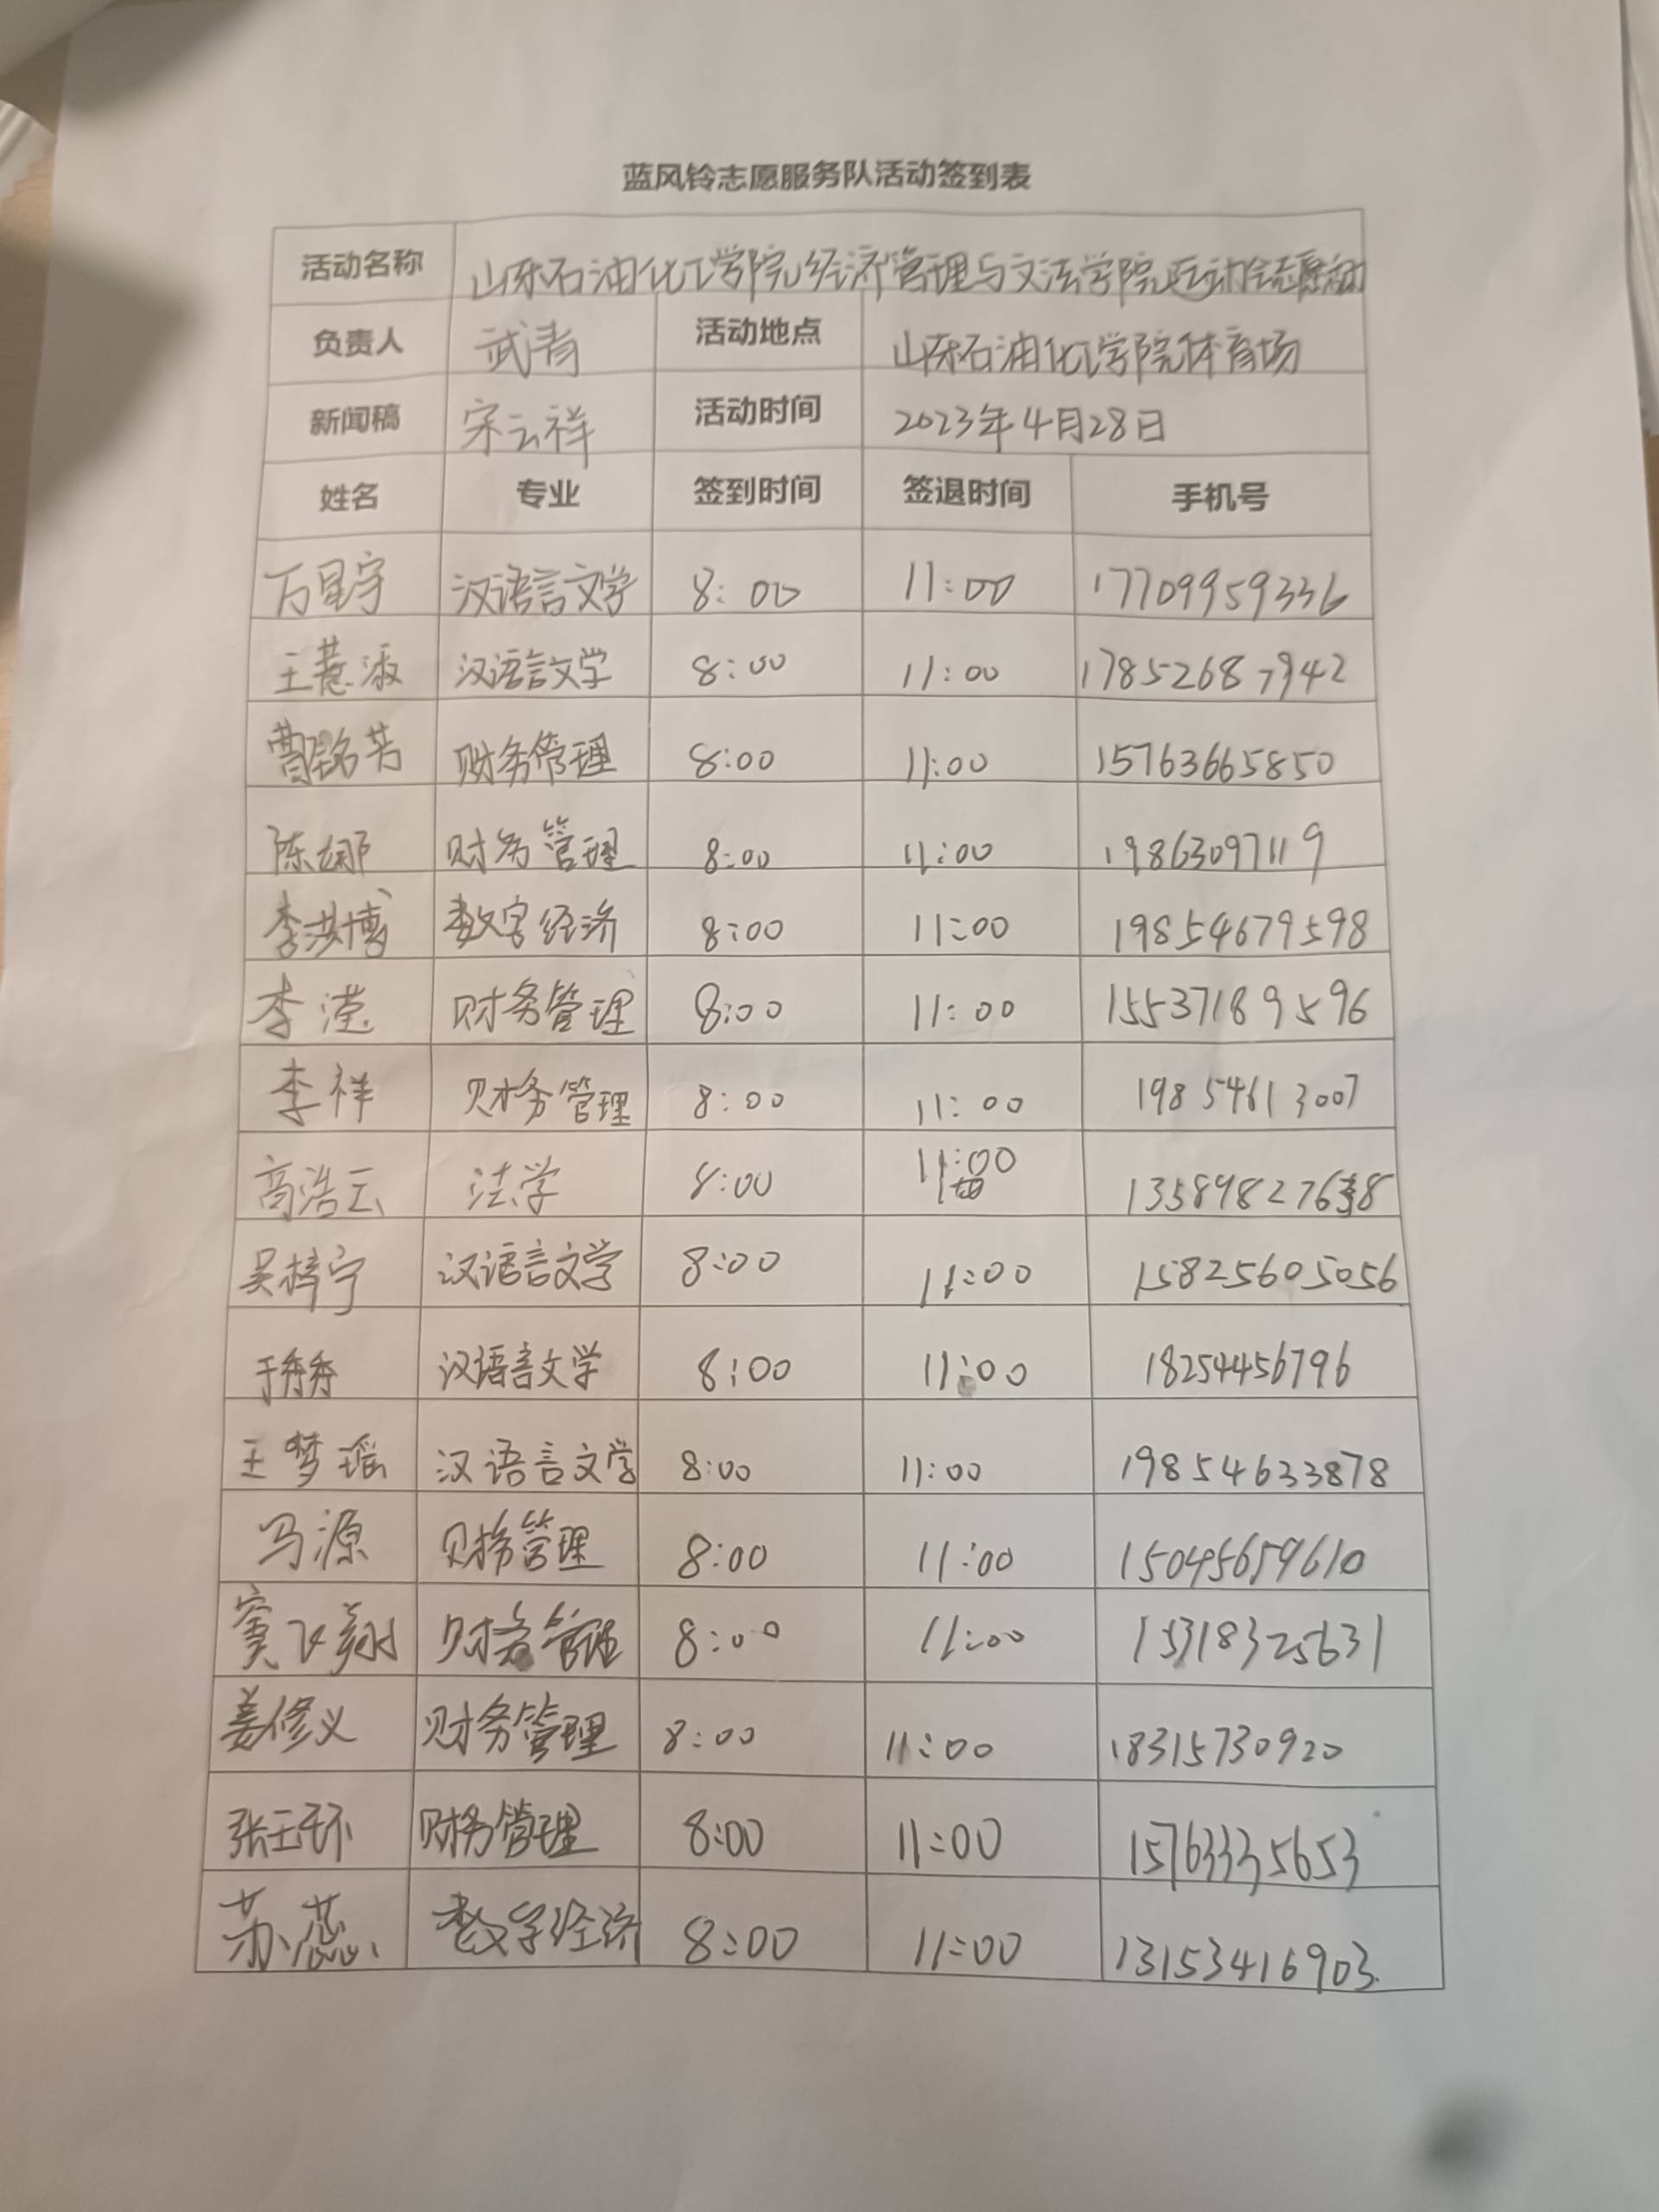 蓝风铃志愿服务队活动签到表
活动名称 山东石油化工学院经济管理与文法学院运动会志愿活动
负责人 武青 活动地点 山东石油化工学院体育场
新闻稿 宋云祥 活动时间 2023年4月28日
姓名 专业 签到时间 签退时间 手机号
万星宇 汉语言文学 8:00 11:00 17709959336
王薏淑 汉语言文学 8:00 11:00 17852687942
曹铭芳 财务管理 8:00 11:00 15763665850
陈娜 财务管理 8:00 11:00 19863097119
李洪博 数字经济 8:00 11:00 19854679598
李滢 财务管理 8:00 11:00 15537189596
李祥 财务管理 8:00 11:00 19854613007
高浩云 法学 8:00 11:00
吴梓宁 汉语言文学 8:00 11:00 15825605056
于秀秀 汉语言文学 8:00 11:00 18254456796
王梦瑶 汉语言文学 8:00 11:00 19854633878
马源 财务管理 8:00 11:00 15045659610
窦飞翔 财务管理 8:00 11:00 15318325631
姜修义 财务管理 8:00 11:00 18315730920
张玉环 财务管理 8:00 11:00 15763335653
苏蕊 数字经济 8:00 11:00 13153416903